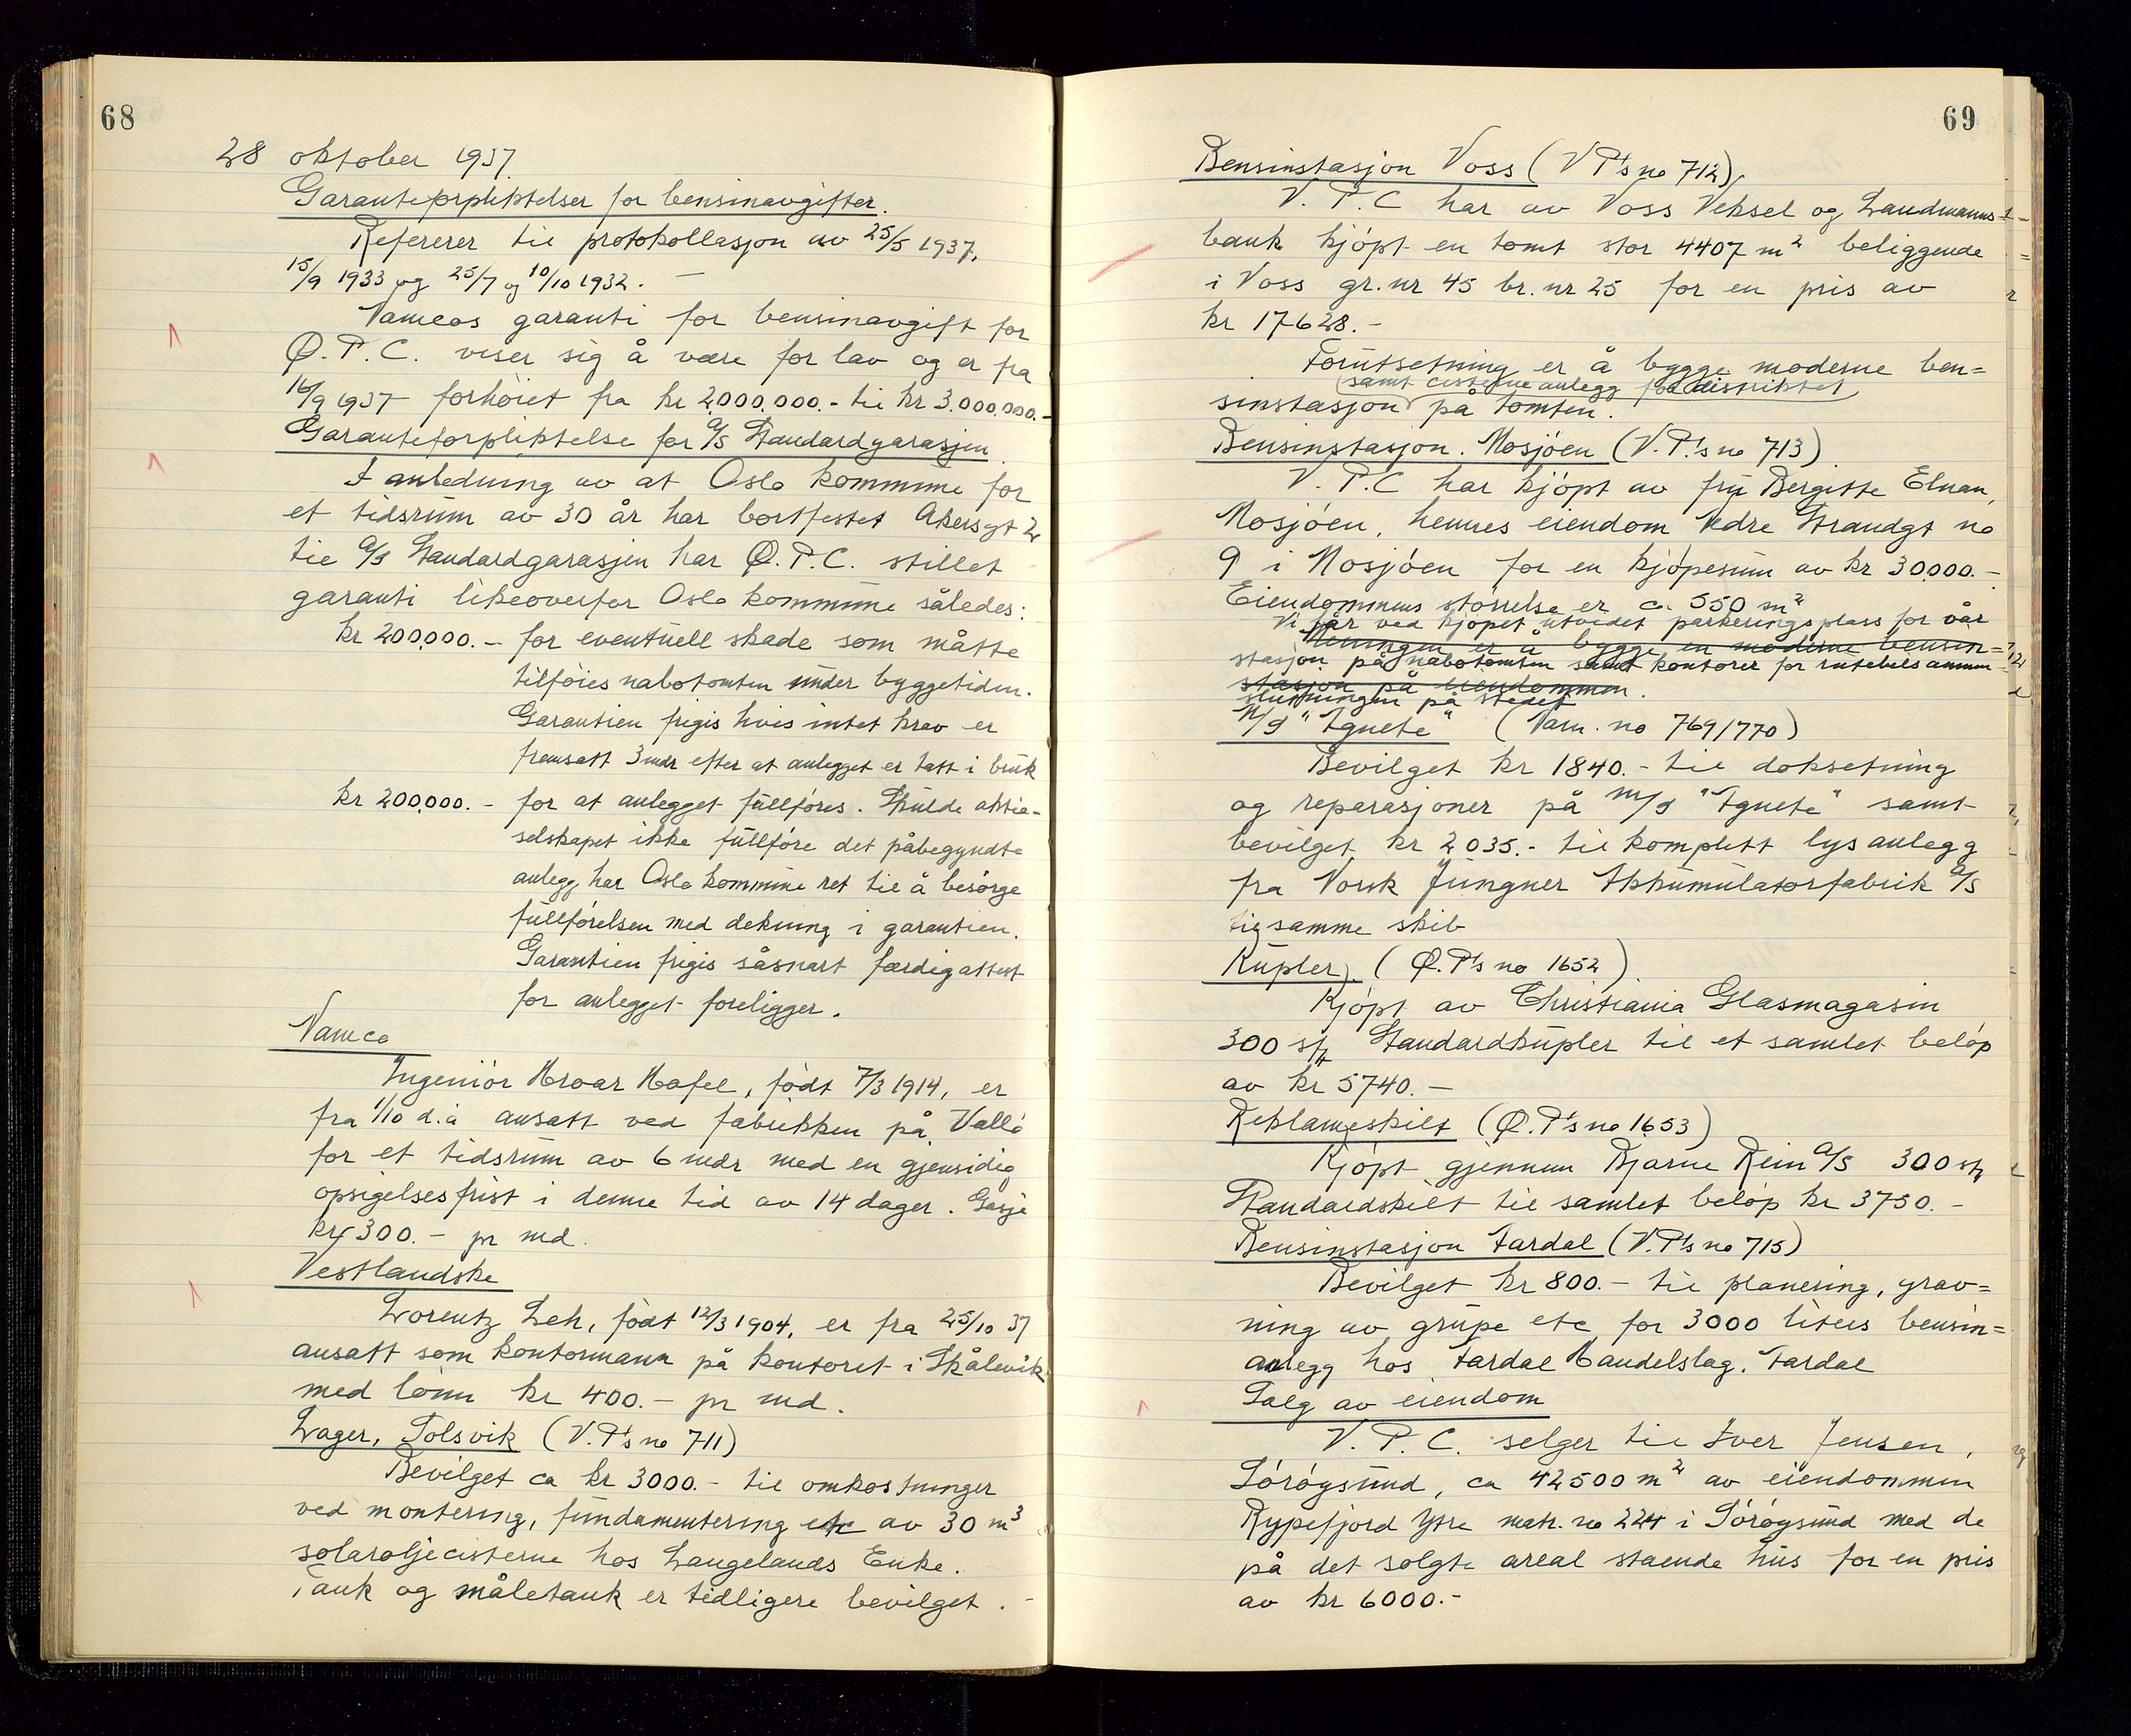 68
28 oktober 1937.
Garanteforpliktelser for bensinavgifter.
Refererer til protokollasjon av 25/5 1937,
15/9 1933 og 25/7 og 10/10 1932. —
Vamcos garanti for bensinavgift for
Ø.P.C. viser sig å være for lav og er fra
16/9 1937 forhöiet fra kr 2.000.000.- til kr 3.000.000.-
Garanteforpliktelse for A/S Standardgarasjen.
I anledning av at Oslo kommune for
et tidsrum av 30 år har bortfestet Akersgt 2
til A/S Standardgarasjen har Ø.P.C. stillet
garanti likeoverfor Oslo kommune således:
kr 200.000.- for eventuell skade som måtte
tilföies nabotomten under byggetiden.
Garantien frigis hvis intet krav er
fremsatt 3 mdr efter at anlegget er tatt i bruk
kr 200.000.- for at anlegget fullföres. Skulde aktie-
selskapet ikke fullföre det påbegyndte
anlegg, har Oslo kommune ret til å besörge
fullförelsen med dekning i garantien.
Garantien frigis såsnart færdigattest
for anlegget foreligger.
Vamco
Ingeniör Hroar Hafel, födt 7/3 1914, er
fra 1/10 d.å ansatt ved fabrikken på Vallö
for et tidsrum av 6 mdr med en gjensidig
opsigelsesfrist i denne tid av 14 dager. Gasje
kr 300.- pr md.
Vestlandske
Lorentz Leh, födt 12/3 1904, er fra 25/10 37
ansatt som kontormann på kontoret i Skålevik
med lönn kr 400.- pr md.
Lager, Solsvik (V.P's no 711)
Bevilget ca kr 3000.- til omkostninger
ved montering, fundamentering etc av 30 m³
solaroljecisterne hos Langelands Enke.
Tank og måletank er tidligere bevilget.-
69
Bensinstasjon Voss (V P's no 712).
V.P.C har av Voss Veksel og Landmanns=
bank kjöpt en tomt stor 4407 m² beliggende
i Voss gr.nr 45 br.nr 25 for en pris av
kr 17628.-
Forutsetning er å bygge moderne ben=
(samt cisterneanlegg for distriktet)
sinstasjon på tomten.
Bensinstasjon. Mosjöen (V.P.'s no 713)
V.P.C har kjöpt av fru Bergitte Elnan,
Mosjöen, hennes eiendom Nedre Strandgt no
9 i Mosjöen for en kjöpesum av kr 30.000.-
Eiendommens störrelse er ca. 550 m²
Vi får ved kjöpet utvidet parkeringsplass for vår
Meningen er å bygge en moderne bensin=
stasjon på nabotomten samt kontorer for rutebilsammen-
stasjon på eiendommen.
slutningen på stedet
M/S "Agnete" (Vam. no 769/770)
Bevilget kr 1840.- til doksetning
og reparasjoner på M/S "Agnete" samt
bevilget kr 2035.- til komplett lysanlegg
fra Norsk Jungner Akkumulatorfabrik A/S
til samme skib
Kupler. (Ø.P's no 1652).
Kjöpt av Christiania Glasmagasin
300 stk Standardkupler til et samlet belöp
av kr 5740.—
Reklameskilt (Ø.P's no 1653)
Kjöpt gjennem Bjarne Rein A/S 300 stk
Standardskilt til samlet belöp kr 3750.-
Bensinstasjon Fardal (V.P's no 715)
Bevilget kr 800.- til planering, grav=
ning av grupe etc for 3000 liters bensin=
anlegg hos Fardal Handelslag. Fardal
Salg av eiendom
V.P.C. selger til Iver Jensen,
Söröysund, ca 42500 m² av eiendommen
Rypefjord Ytre matr. no 224 i Söröysund med de
på det solgte areal stående hus for en pris
av kr 6000.-